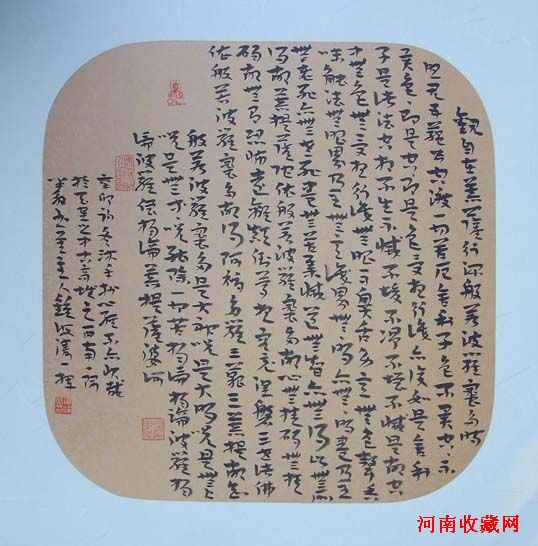 觀自在菩薩行深般若波羅蜜多時
照見五蘊皆空度一切苦厄舍利子色不異空空不
異色色即是空空即是色受想行識亦復如是舍利
子是諸法空相不生不滅不垢不淨不增不減是故空
中無色無受想行識無眼耳鼻舌身意無色聲香
味觸法無眼界乃至無意識界無無明亦無無明盡乃至
無老死亦無老死盡無苦集滅道無智亦無得以無所
得故菩提薩埵依般若波羅蜜多故心無罣礙無罣
礙故無有恐怖遠離顛倒夢想究竟涅槃三世諸佛
依般若波羅蜜多故得阿耨多羅三藐三菩提故知
般若波羅蜜多是大神咒是大明咒是無上
咒是無等等咒能除一切苦揭諦揭諦波羅揭
諦波羅僧揭諦菩提薩婆訶
辛卯初冬沐手抄心經不亦快哉
城之西南一隅
主人
河南收藏网